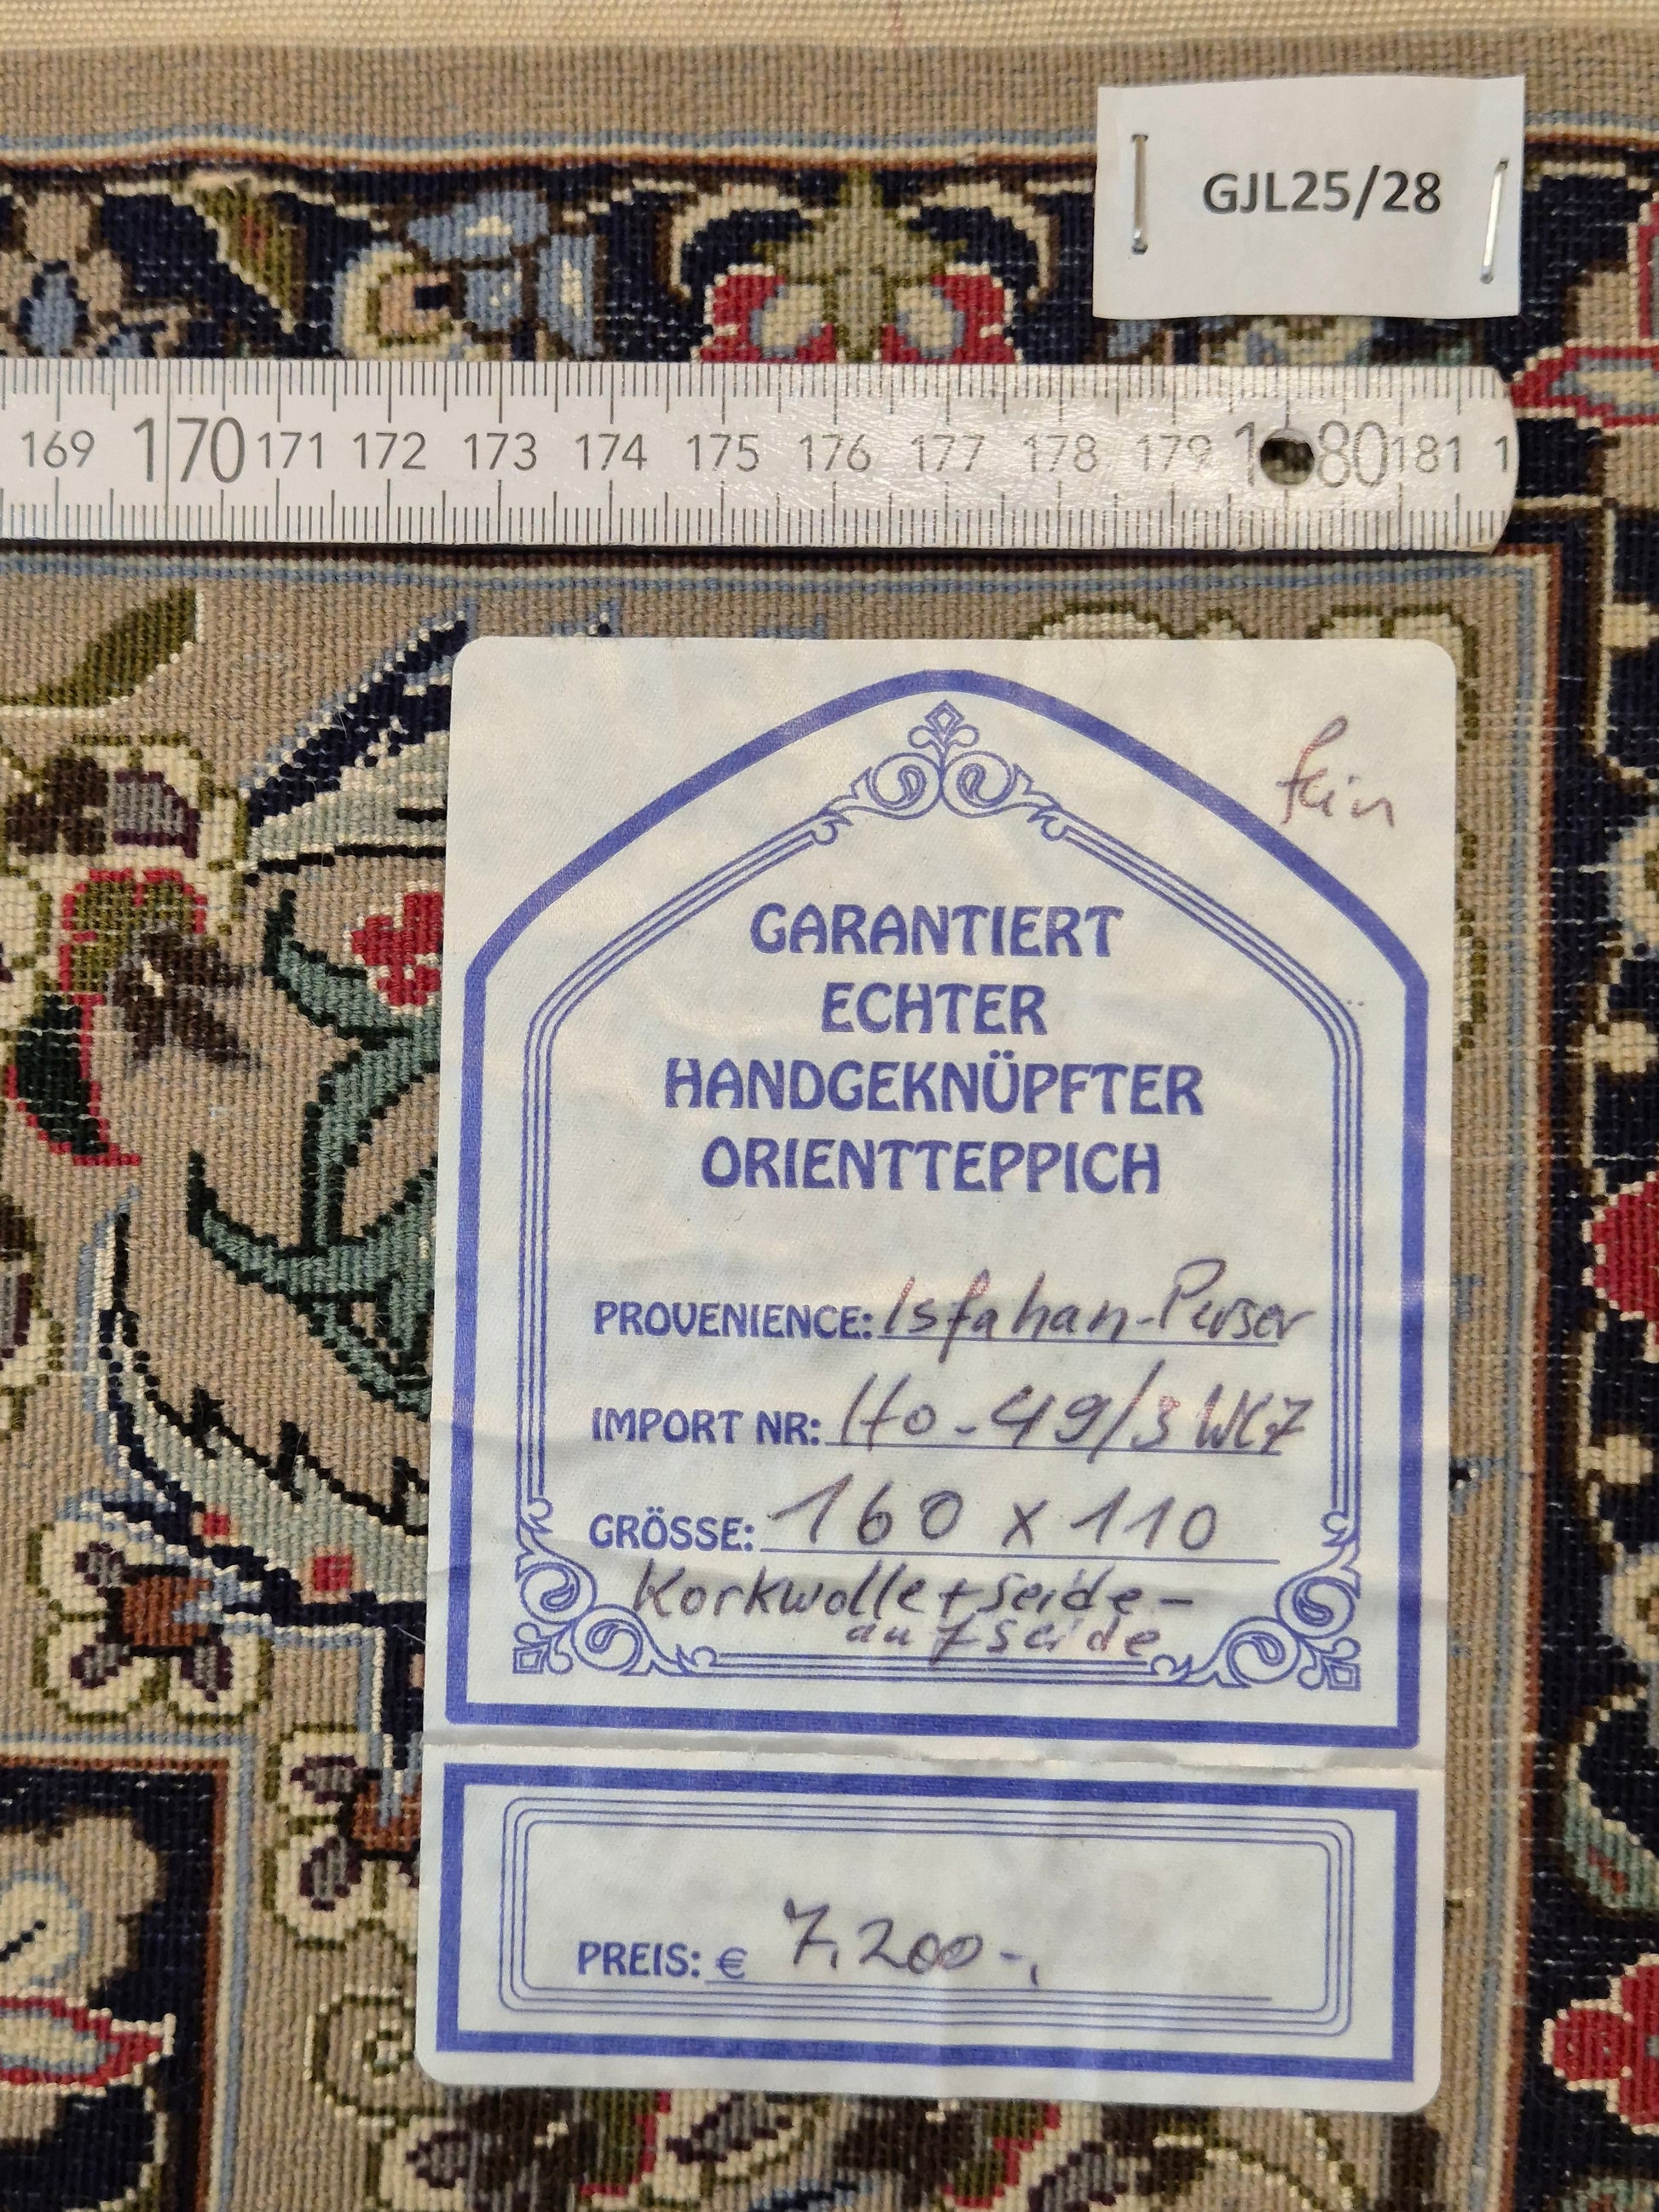 GJL25/28
169 170 171 172 173 174 175 176 177 178 179 180 181 1
fein
GARANTIERT
ECHTER
HANDGEKNÜPFTER
ORIENTTEPPICH
PROVENIENCE: Isfahan-Perser
IMPORT NR: Ho-49/3 WK7
GRÖSSE: 160 x 110
Korkwolle+seide-
auf seide
PREIS: € 7,200-,